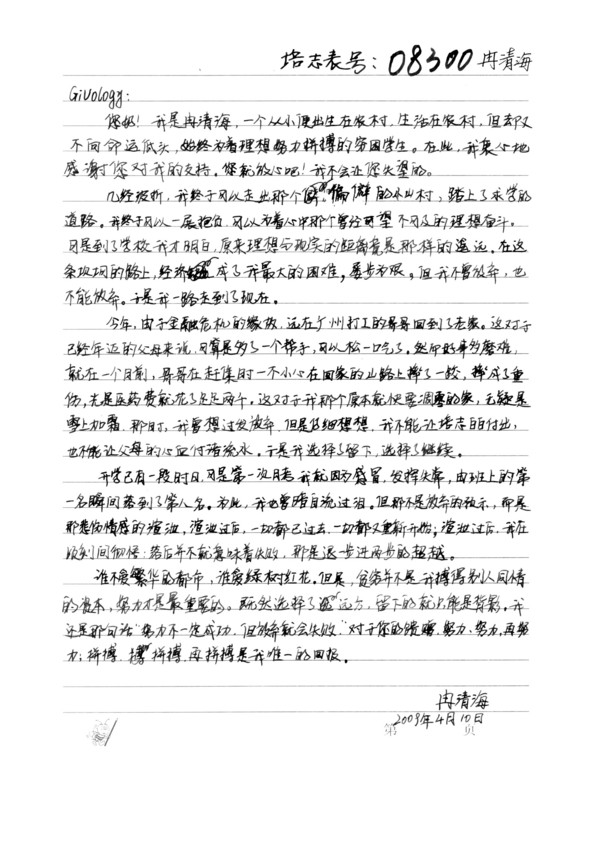 培志表号：08300 冉清海
Givology：
您好！我是冉清海，一个从小便出生在农村，生活在农村，但却又
不向命运低头，始终为着理想努力拼搏的贫困学生。在此，我衷心地
感谢您对我的支持。您就放心吧！我不会让您失望的。
几经波折，我终于可以走出那个偏僻的小山村，踏上了求学的
道路。我终于可以一展抱负，可以为着心中那个曾经可望不可及的理想奋斗。
可是到了学校我才明白，原来理想与现实的距离竟是那样的遥远，在这
条坎坷的路上，经济成了我最大的困难，屡步为艰。但我不曾放弃，也
不能放弃。于是我一路走到了现在。
今年，由于金融危机的缘故，远在广州打工的哥哥回到了老家。这对于
已经年迈的父母来说，可算是多了一个帮手，可以松一口气了。然而好事多磨难，
就在一个月前，哥哥在赶集时一不小心在回家的山路上摔了一跤，摔成了重
伤，光是医药费就花了足足两千。这对于我那个原本就快要凋零的家，无疑是
雪上加霜。那时，我曾想过放弃。但是仔细想想，我不能让培志的付出，
也不能让父母的心血付诸流水。于是我选择了留下，选择了继续。
开学已有一段时日，可是第一次月考我就因为感冒，发挥失常，由班上的第
一名瞬间落到了第八名。为此，我也曾暗自流过泪。但那不是放弃的表示，那是
那悲伤情感的渲泄，渲泄过后，一切都已过去，一切都又重新开始，渲泄过后，我在
顷刻间彻悟：落后并不就意味着失败，那是退一步进两步的超越。
谁不爱繁华的都市，谁不爱绿树红花。但是，贫穷并不是我搏得别人同情
的资本，努力才是最重要的。既然选择了远方，留下的就只能是背影。我
还是那句话“努力不一定成功，但放弃就会失败。”对于您的馈赠，努力、努力，再努
力；拼搏、拼搏，再拼搏是我唯一的回报。
冉清海
2009年4月10日
第 页